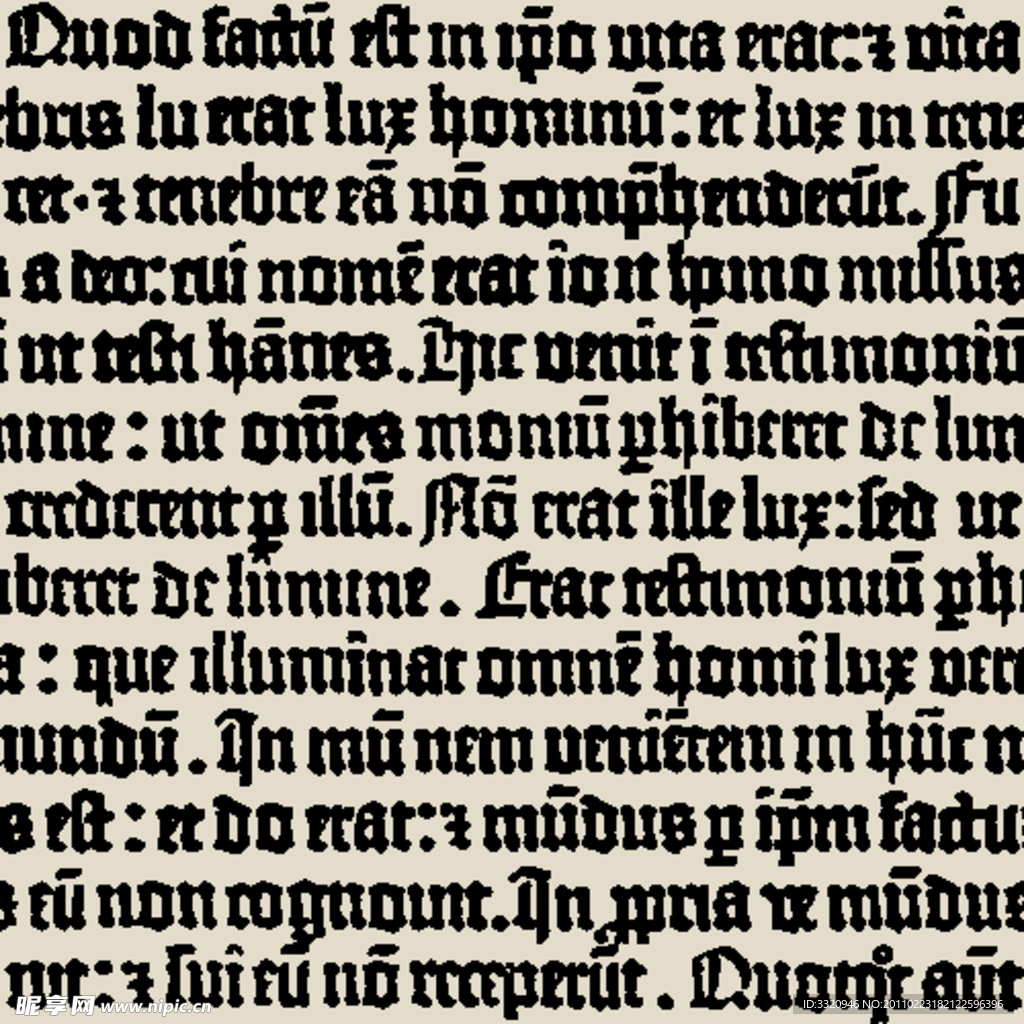 Quod factū est in ip̄o uita erat:⁊ vita
ebris lu erat lux hominū:et lux in tene
cet·⁊ tenebre eā nō comp̄henderūt. Fu
a deo:cui nomē erat ioh homo missus
ut testi hānes. Hic venit ī testimoniū
mine: ut om̄es moniū ꝑhiberet de lum
crederent ꝑ illū. Nō erat ille lux:sed ut
hiberet de lumine. Erat testimoniū ꝑhi
a: que illuminat omnē homi lux vera
mundū. In mū nem venientem in hūc m
s est: et do erat:⁊ mūdus ꝑ ip̄m factu
eū non cognouit. In ꝓpria ve mūdus
nit:⁊ sui eū nō receperūt. Quotqͦt aūt
昵享网 www.nipic.cn
ID:3320946 NO:20110223182122596396